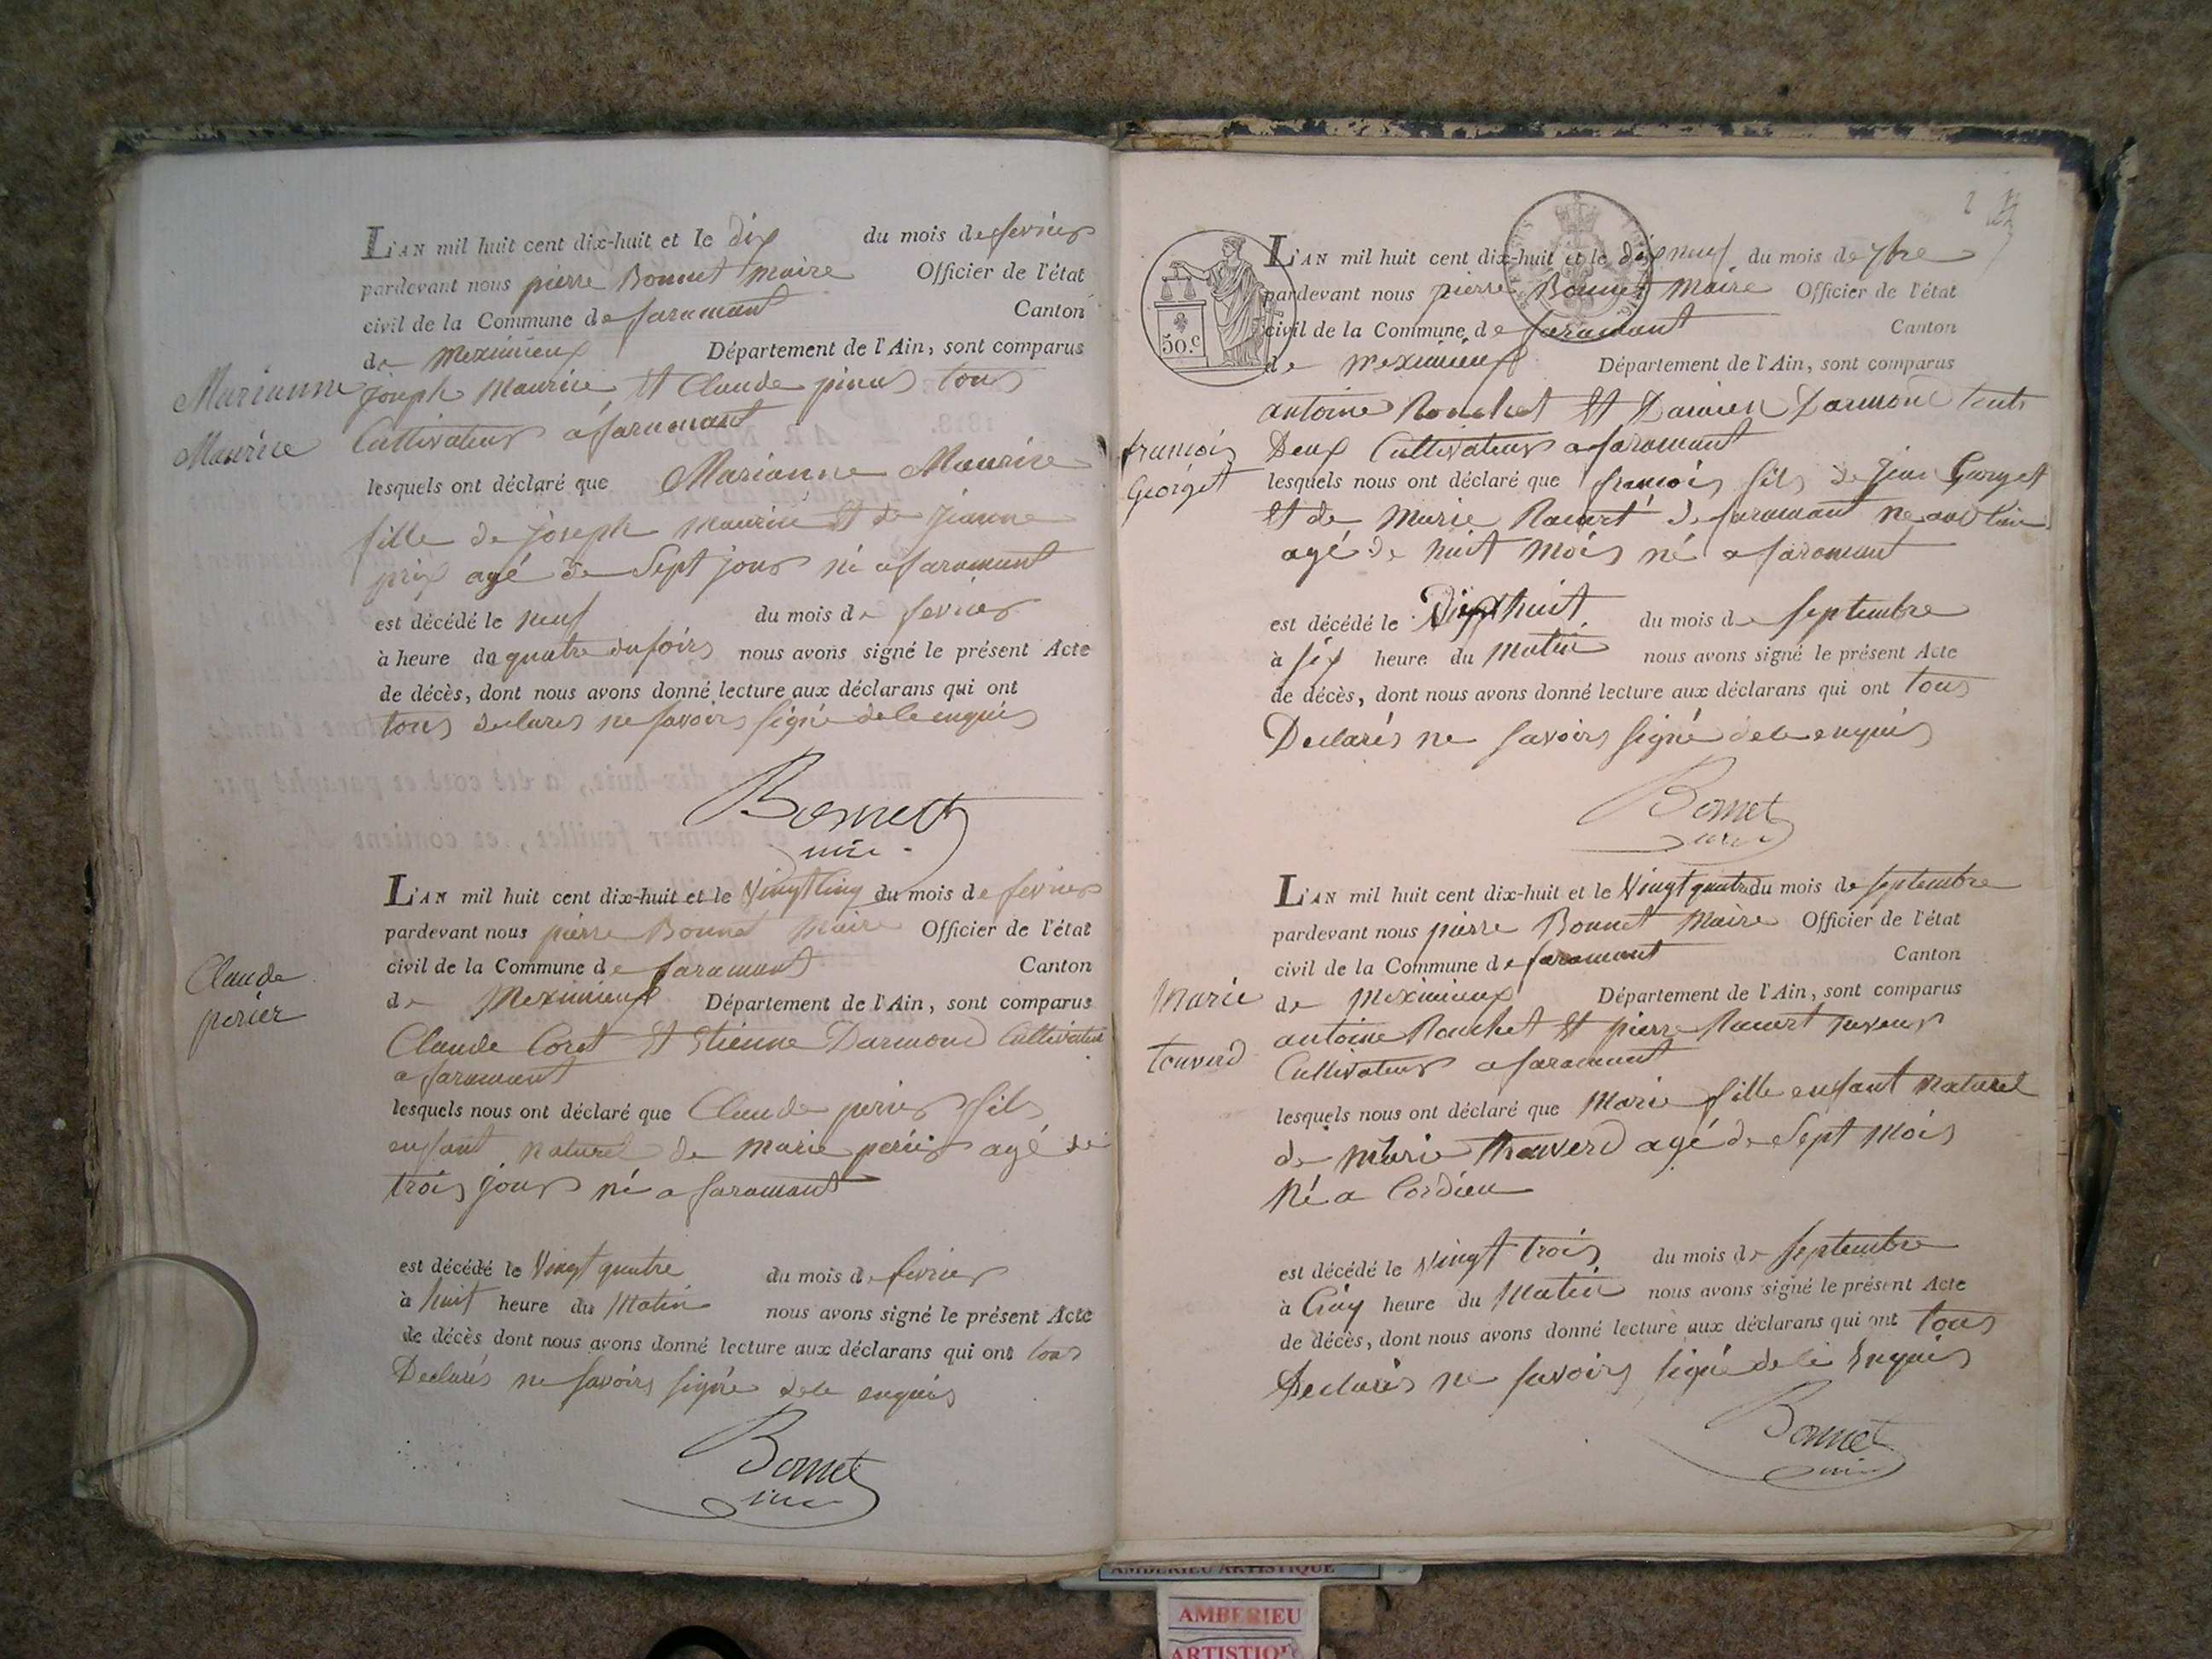 L'AN mil huit cent dix-huit et le dix du mois de fevrier
pardevant nous pierre Bonnet maire Officier de l'état
civil de la Commune de faramant Canton
de Meximieux Département de l'Ain, sont comparus
Marianne Maurice
joseph Maurice Et Claude tous
Cultivateur a faramant
lesquels ont déclaré que Marianne Maurice
fille de joseph maurice Et de jeanne
agé de Sept jour né a faramant
est décédé le neuf du mois de fevrier
à heure de quatre du soir nous avons signé le présent Acte
de décès, dont nous avons donné lecture aux déclarans qui ont
tous declares ne savoir signé de le enquis
Bonnet
L'AN mil huit cent dix-huit et le Vingt Cinq du mois de fevrier
pardevant nous pierre Bonnet Maire Officier de l'état
civil de la Commune de faramant Canton
Claude perier
de Meximieux Département de l'Ain, sont comparus
Claude Coret Et Etienne Darmond Cultivateur
a faramant
lesquels nous ont déclaré que Claude perier fils
enfant naturel de marie perier agé de
trois jour né a faramant
est décédé le Vingt quatre du mois de fevrier
à huit heure du Matin nous avons signé le présent Acte
de décès dont nous avons donné lecture aux déclarans qui ont tous
Declarés ne savoir signé de le enquis
Bonnet
2
50.c
L'AN mil huit cent dix-huit et le dix neuf du mois de 7bre
pardevant nous pierre Bonnet Maire Officier de l'état
civil de la Commune de faramant Canton
de Meximieux Département de l'Ain, sont comparus
antoine Rouchet Et Damien Darmond touts
françois Georget
Deux Cultivateur a faramant
lesquels nous ont déclaré que françois fils de jean Gorget
Et de Marie de faramant
agé de huit Mois né a faramant
est décédé le Dix huit du mois de septembre
à six heure du Matin nous avons signé le présent Acte
de décès, dont nous avons donné lecture aux déclarans qui ont tous
Declarés ne savoir signé de le enquis
Bonnet
L'AN mil huit cent dix-huit et le Vingt quatre du mois de septembre
pardevant nous pierre Bonnet Maire Officier de l'état
civil de la Commune de faramant Canton
Marie touverd
de Meximieux Département de l'Ain, sont comparus
antoine Rouchet Et pierre
Cultivateur a faramant
lesquels nous ont déclaré que Marie fille enfant naturel
de marie Thouverd agé de Sept Mois
Né a Cordieu
est décédé le Vingt trois du mois de septembre
à Cinq heure du Matin nous avons signé le présent Acte
de décès, dont nous avons donné lecture aux déclarans qui ont tous
Declarés ne savoir signé de le Enquis
Bonnet
AMBERIEU ARTISTIQUE
AMBERIEU